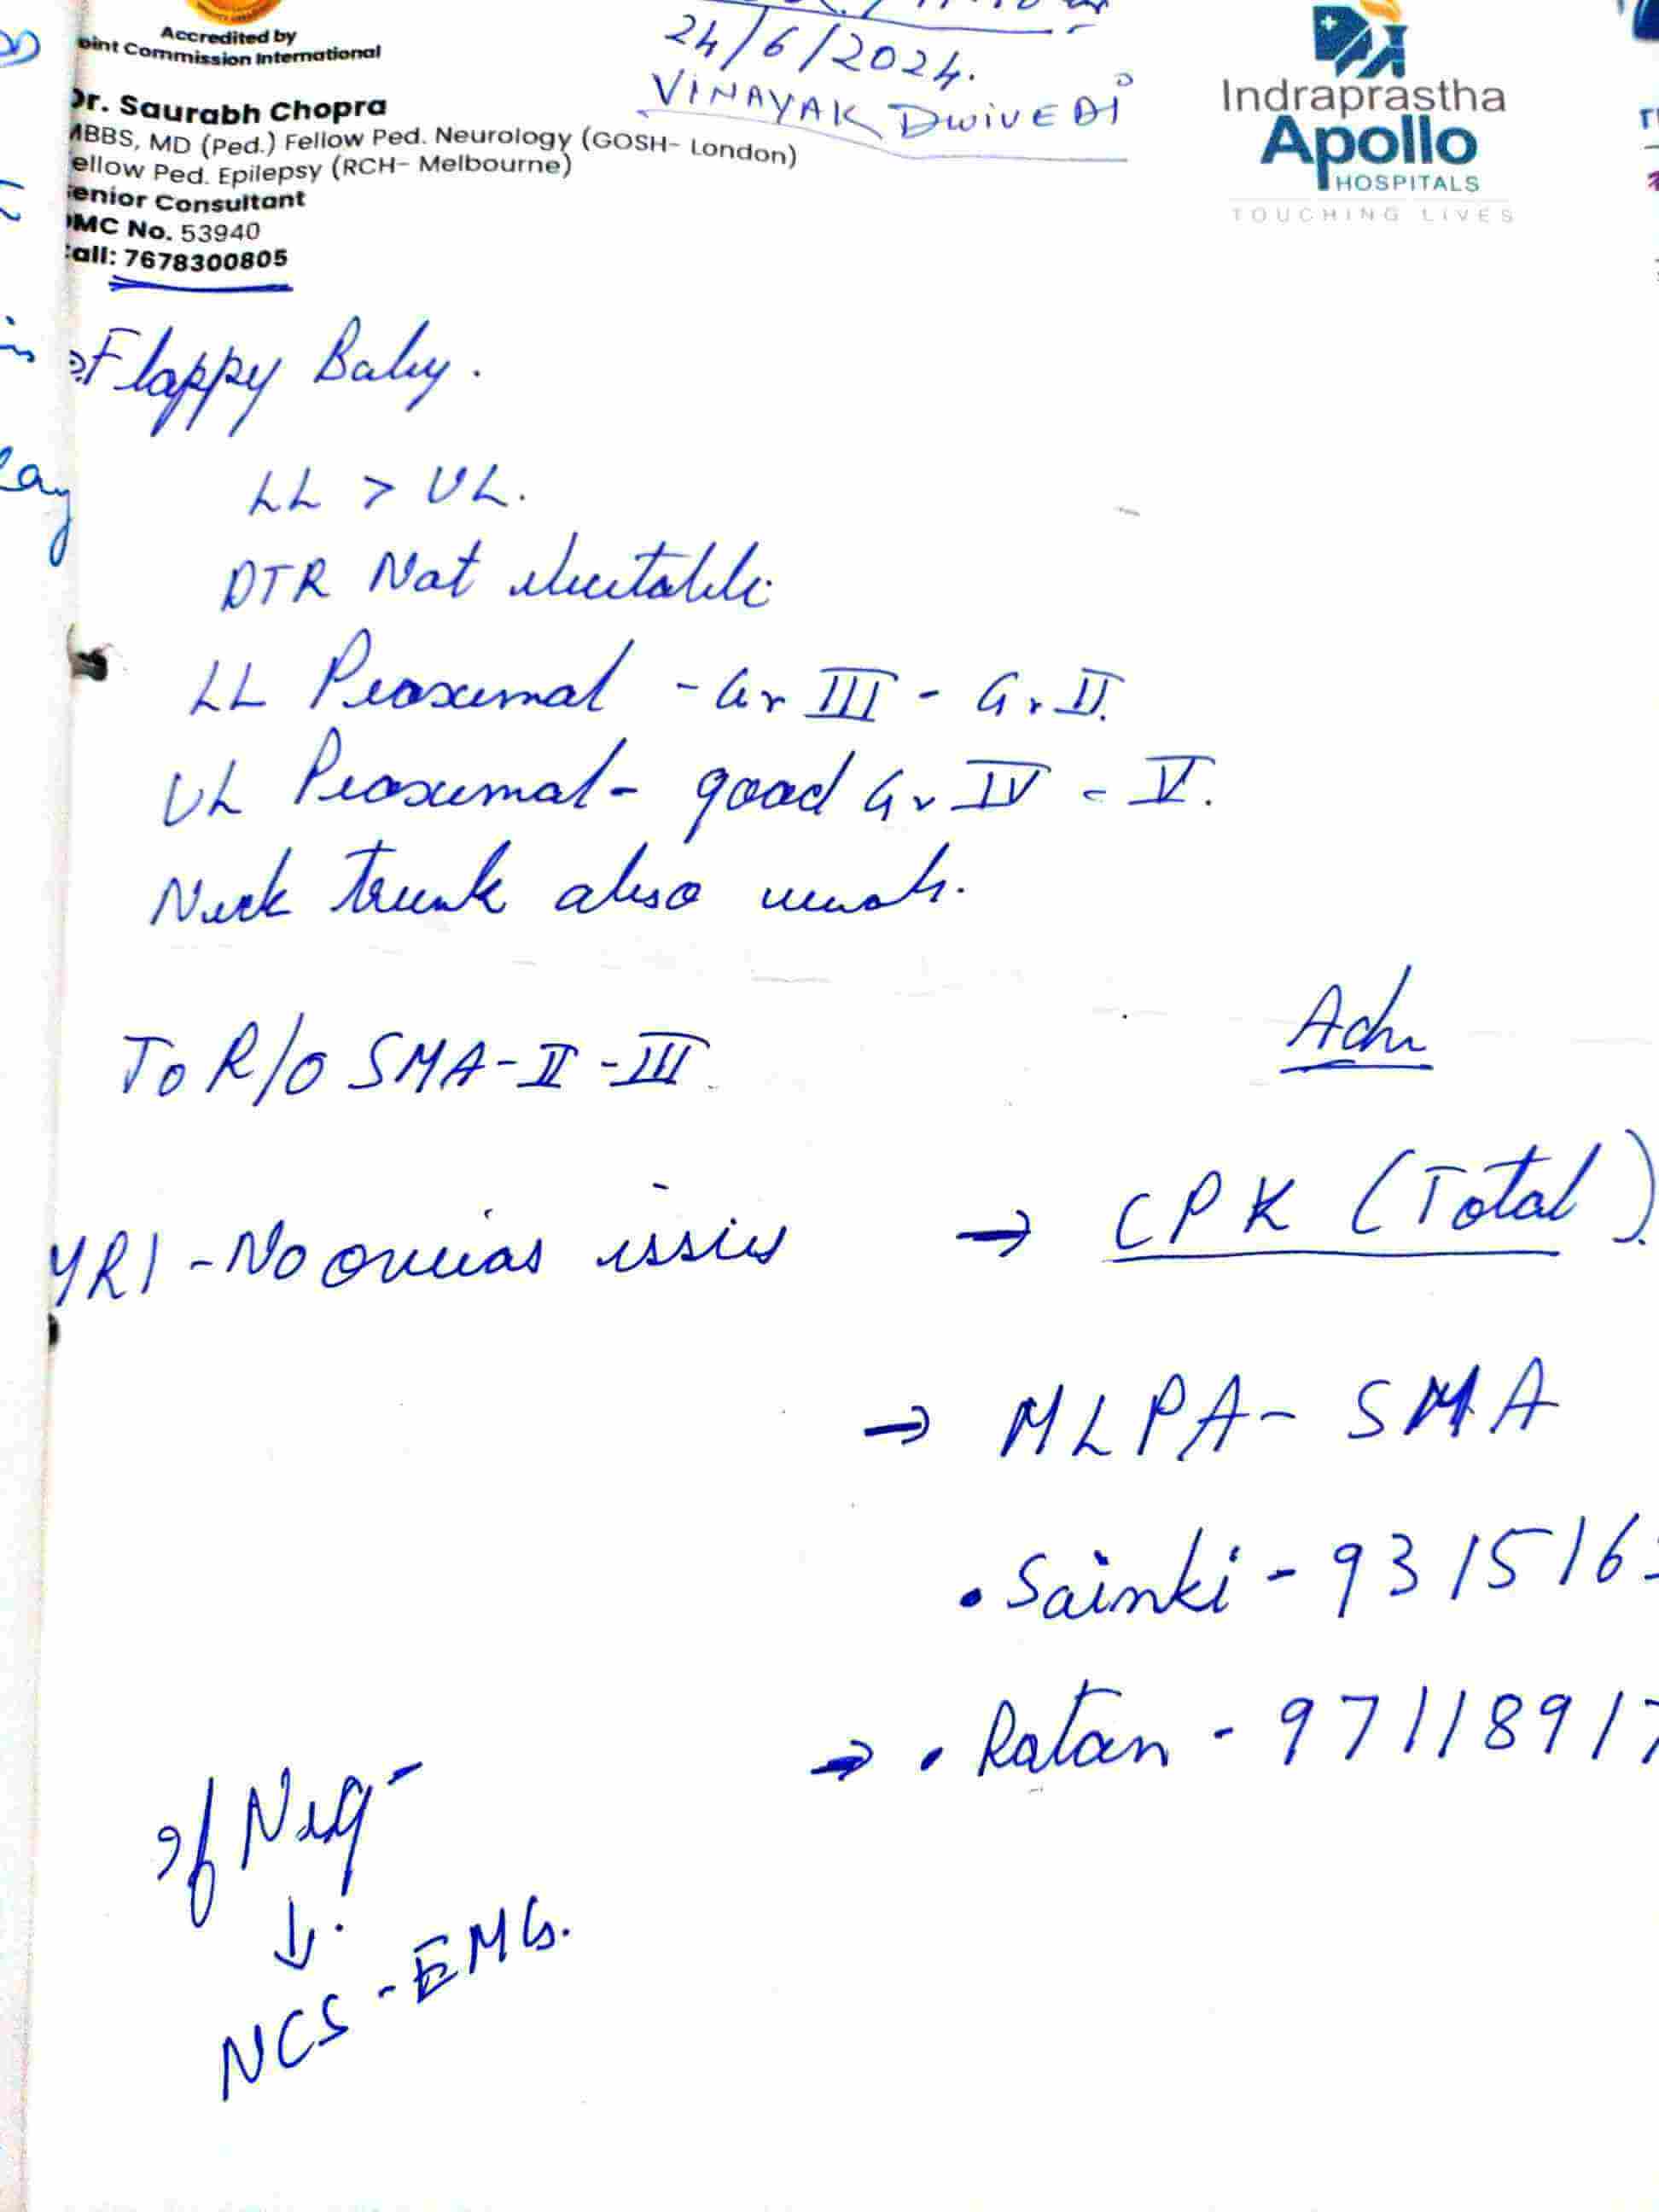 Accredited by
oint Commission International
24/6/2024.
VINAYAK DWIVEDI
Dr. Saurabh Chopra
MBBS, MD (Ped.) Fellow Ped. Neurology (GOSH- London)
ellow Ped. Epilepsy (RCH- Melbourne)
enior Consultant
MC No. 53940
all: 7678300805
Indraprastha
Apollo
HOSPITALS
TOUCHING LIVES
Flappy Baby.
LL > UL.
DTR Not elicitable
LL Proximal - Gr III - Gr II.
UL Proximal - good Gr IV - V.
Neck trunk also weak.
To R/O SMA-II-III.
Adv
MRI - No issues
→ CPK (Total)
→ MLPA- SMA
• Sainki - 9315163
→ • Ratan - 97118917
If Neg -
↓
NCS - EMG.